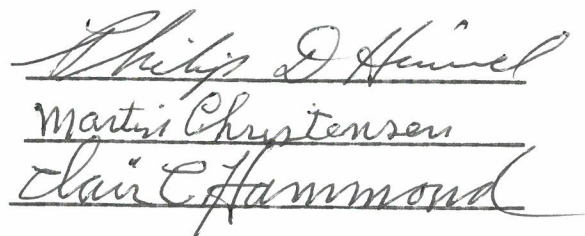 Philip D Himmel
Martin Christensen
Clair C Hammond